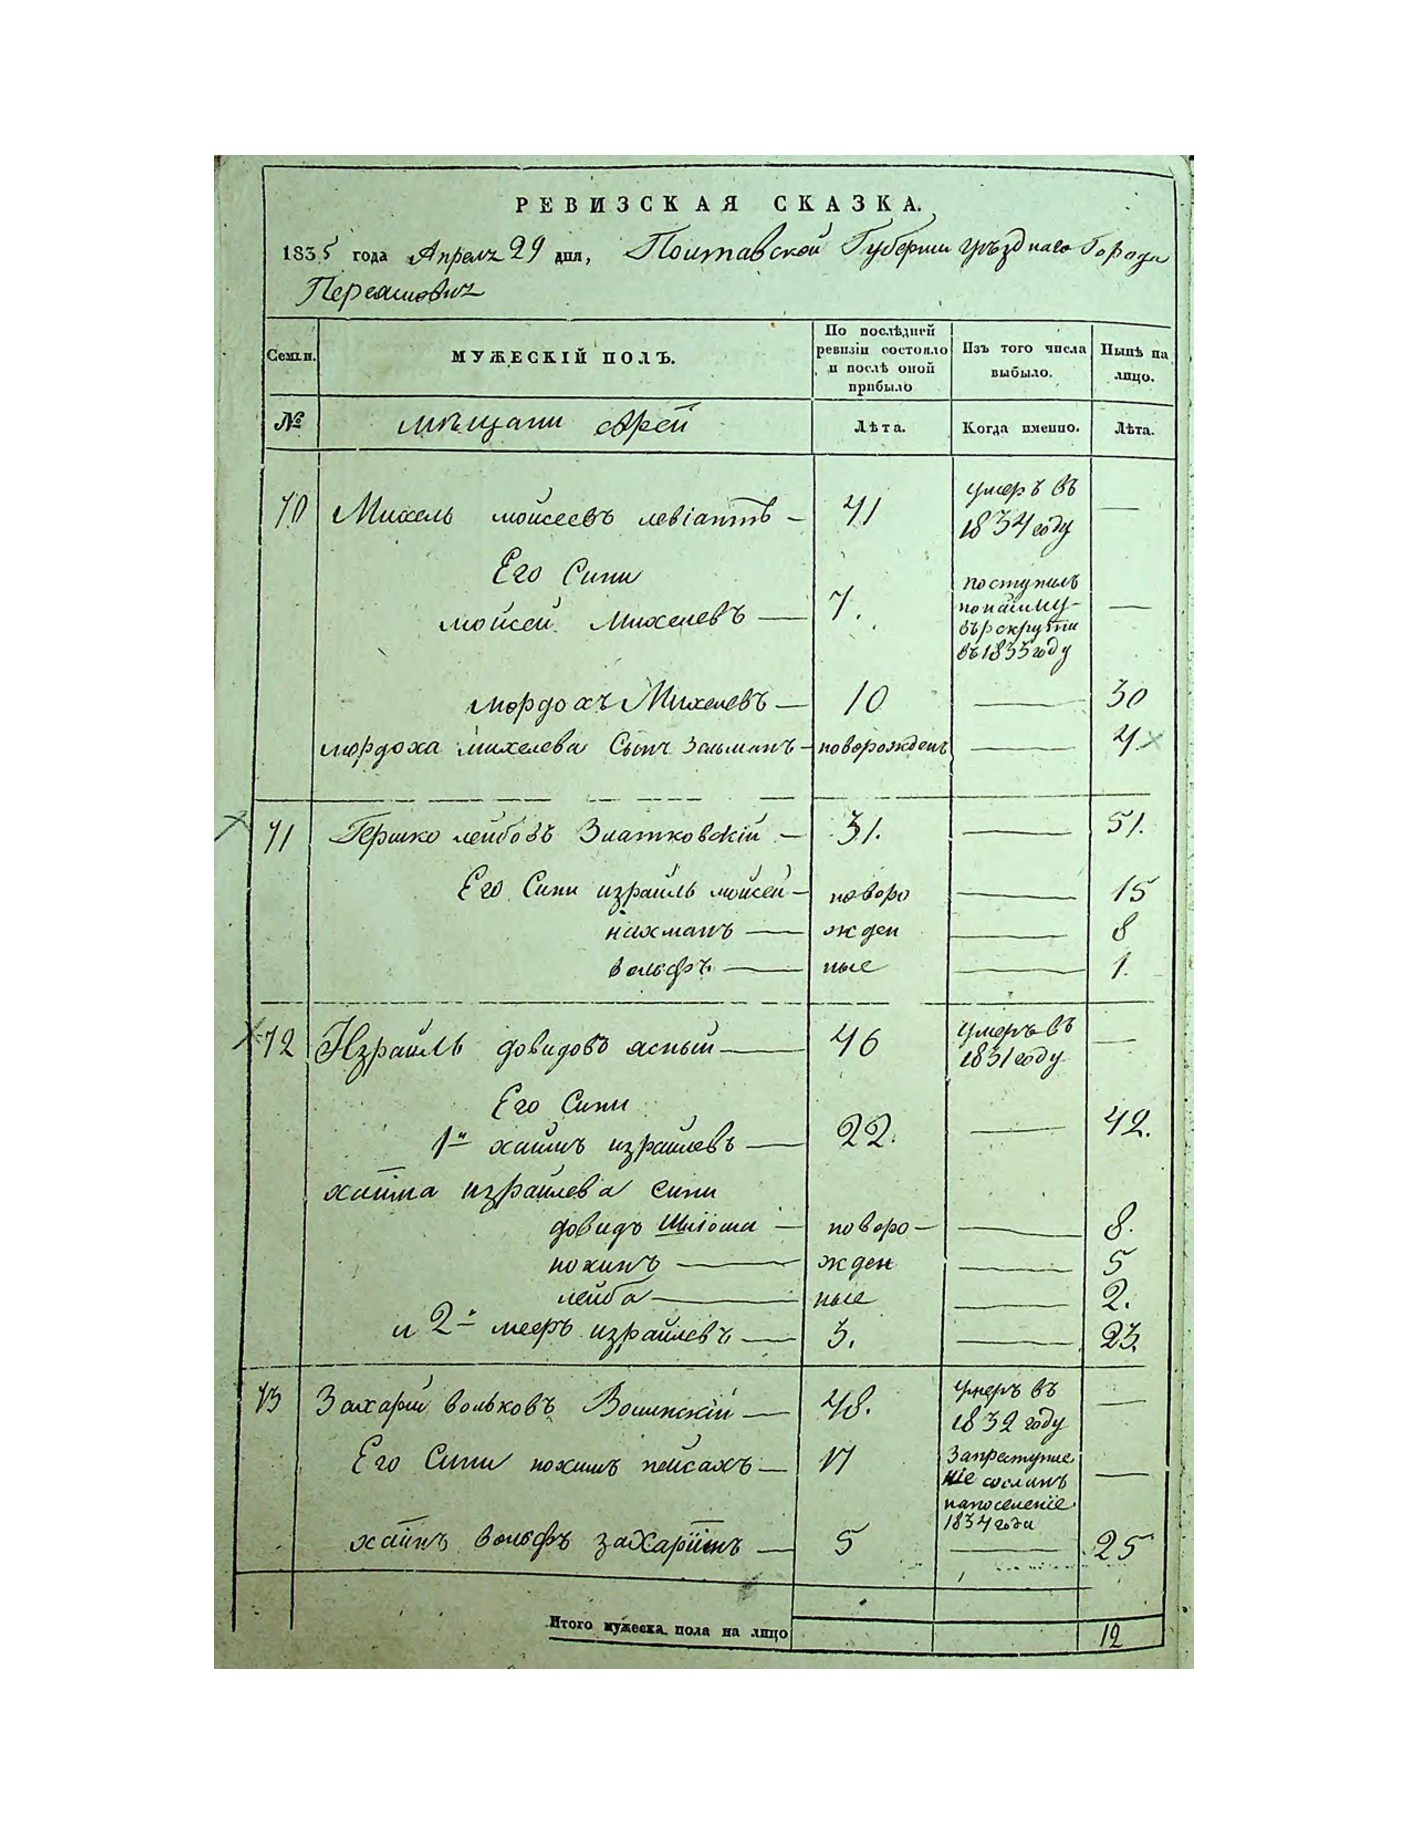 РЕВИЗСКАЯ СКАЗКА.
1835 года Апреля 29 дня, Полтавской Губернии уѣзднаго Города
Переяславля
Семьи. МУЖЕСКІЙ ПОЛЪ. По послѣдней ревизіи состояло и послѣ оной прибыло Изъ того числа выбыло. Нынѣ на лицо.
№ мѣщани евреи Лѣта. Когда именно. Лѣта.
70 Михель мойсеевъ левіантъ — 41 умеръ въ 1834 году —
Его Сини
мойсей Михелевъ — 7. поступилъ по найму въ рекруты въ 1833 году —
мордохъ Михелевъ — 10 — 30
мордоха михелева Сынъ Зальманъ — новорожденъ — 4
71 Гершко лейбовъ Златковскій — 31. — 51.
Его Сини израиль мойсей — новоро — 15
нахманъ — жден — 8
вольфъ — ные — 1.
72 Израйль довидовъ ясный — 46 умеръ въ 1831 году —
Его Сини
1й хаимъ израилевъ — 22. — 42.
хаима израилева сини
довидъ Шліома — новоро — — 8.
нохимъ — жден — 5
лейба — ные — 2.
и 2й мееръ израилевъ — 3. — 23.
73 Захарій вольковъ Волинскій — 48. умеръ въ 1832 году —
Его Сини нохимъ пейсахъ — 17 За преступленіе сосланъ на поселеніе 1834 года —
хаимъ вольфъ — 5 — 25
Итого мужеска пола на лицо 12